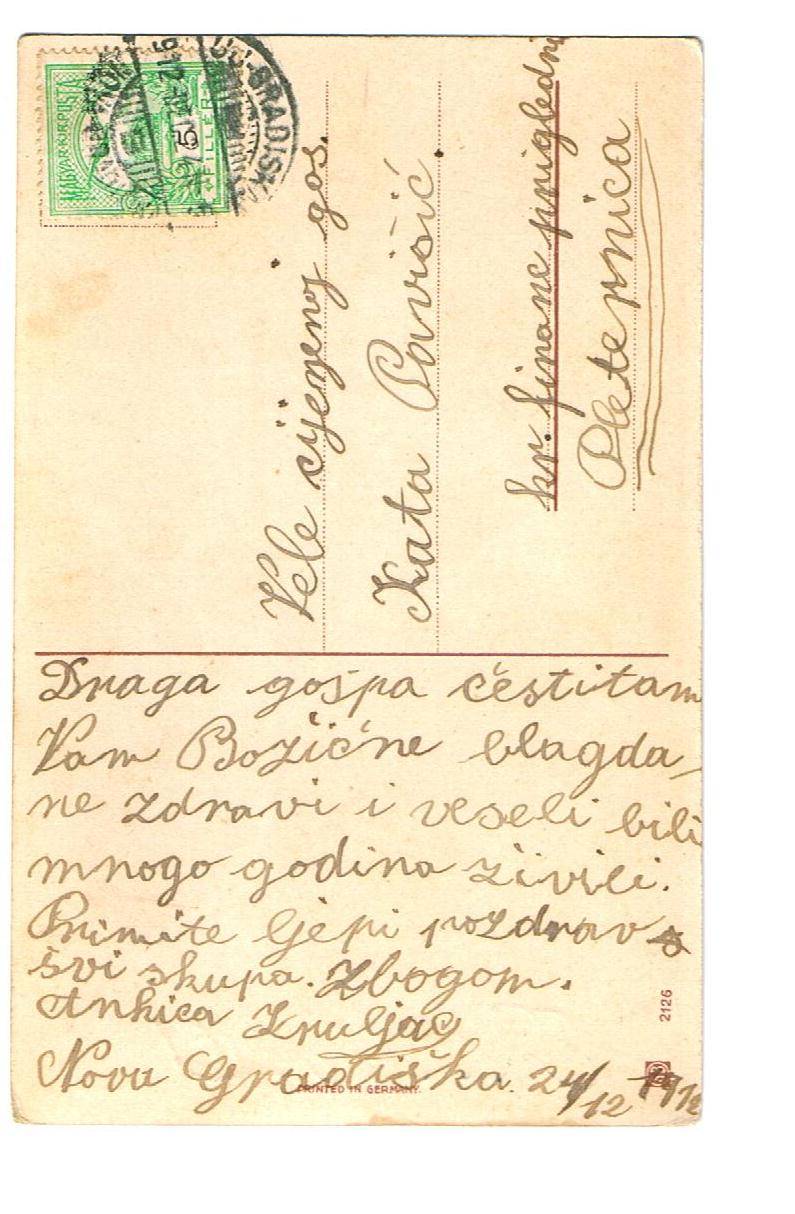 MAGYAR KIR. POSTA
5
FILLER
Vele cijenjenoj gos.
Kata Pavišić
kr. financ priglednik
Pleternica
Draga gošpa čestitam
Vam Božićne blagda-
ne zdravi i veseli bili
mnogo godina živili.
Primite ljepi pozdrav
švi skupa. Zbogom.
Ankica Zruljac
Nova Gradiška. 24/12 1912
2126
PRINTED IN GERMANY.